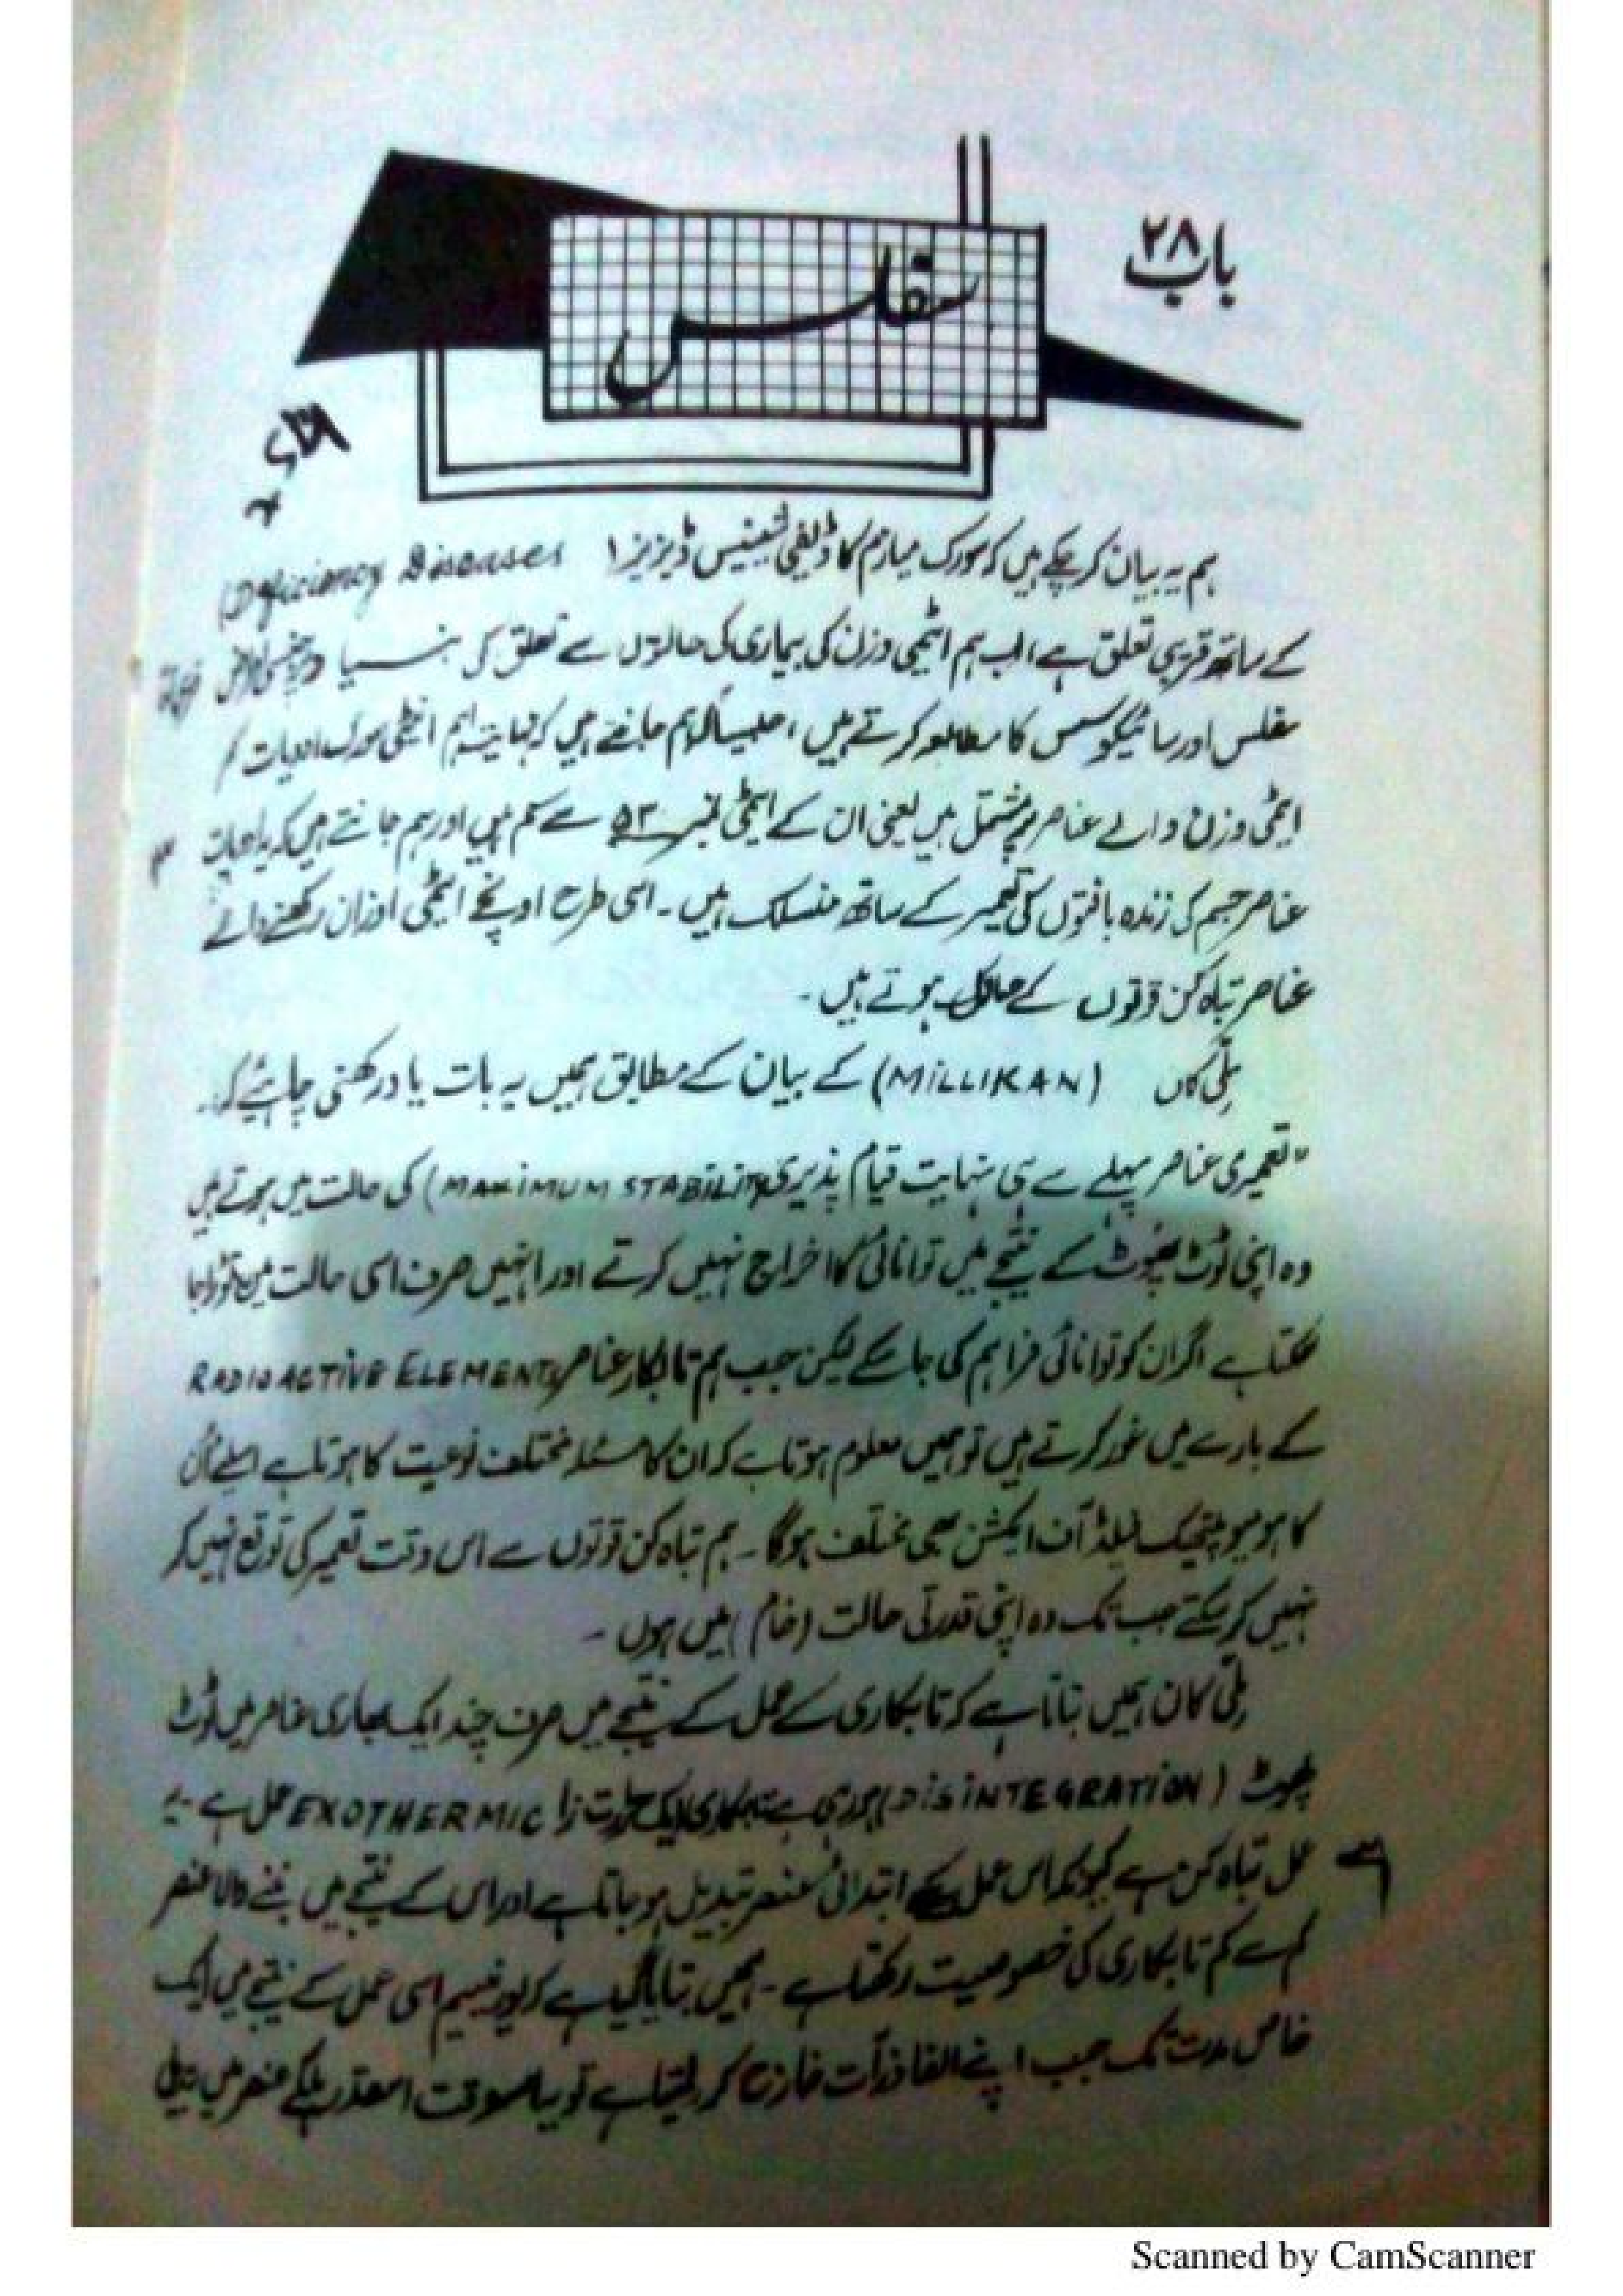 باب ۲۸
سفلس
ہم یہ بیان کر چکے ہیں کہ سورک میازم کا ڈیفی شینسی ڈیزیز (Deficiency Diseases
کے ساتھ قریبی تعلق ہے، اب ہم ایٹمی وزن کی بیماری کی حالتوں سے تعلق کی
سفلس اور سائیکوسس کا مطالعہ کرتے ہیں، جیسا کہ ہم جانتے ہیں کہ نہایت اہم اینٹی سورک ادویات کم
ایٹمی وزن والے عناصر پر مشتمل ہیں یعنی ان کے ایٹمی نمبر ۵۳ سے کم ہیں اور ہم جانتے ہیں کہ یہ
عناصر جسم کی زندہ بافتوں کی تعمیر کے ساتھ منسلک ہیں۔ اسی طرح اونچے ایٹمی اوزان رکھنے والے
عناصر تباہ کن قوتوں کے حامل ہوتے ہیں۔
ملی کاں (MiLLIKAN) کے بیان کے مطابق ہمیں یہ بات یاد رکھنی چاہئے کہ۔
"تعمیری عناصر پہلے سے ہی نہایت قیام پذیری (MAXIMUM STABILITY) کی حالت میں ہوتے ہیں
وہ اپنی ٹوٹ پھوٹ کے نتیجے میں توانائی کا اخراج نہیں کرتے اور انہیں صرف اسی حالت میں توڑا جا
سکتا ہے اگر ان کو توانائی فراہم کی جا سکے لیکن جب ہم تابکار عناصر RADIOACTIVE ELEMENTS
کے بارے میں غور کرتے ہیں تو ہمیں معلوم ہوتا ہے کہ ان کا مسئلہ مختلف نوعیت کا ہوتا ہے اسلئے ان
کا ہومیوپیتھک فیلڈ آف ایکشن بھی مختلف ہوگا۔ ہم تباہ کن قوتوں سے اس وقت تعمیر کی توقع نہیں کر
نہیں کر سکتے جب تک وہ اپنی قدرتی حالت (خام) میں ہوں۔
ملی کان ہمیں بتاتا ہے کہ تابکاری کے عمل کے نتیجے میں صرف چند ایک بھاری عناصر میں ٹوٹ
پھوٹ (DiSiNTEGRATiON) ہو رہی ہے تابکاری ایک حرارت زا EXOTHERMIC عمل ہے۔ یہ
عمل تباہ کن ہے کیونکہ اس عمل سے ابتدائی عنصر تبدیل ہو جاتا ہے اور اس کے نتیجے میں بننے والا عنصر
کم سے کم تابکاری کی خصوصیت رکھتا ہے۔ ہمیں بتایا گیا ہے کہ یورینیم اسی عمل کے نتیجے میں ایک
خاص مدت تک جب اپنے الفا ذرات خارج کر لیتا ہے تو یہ اسوقت اسقدر ہلکے عنصر میں تبدیل
Scanned by CamScanner